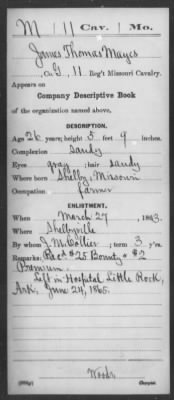 M | 11 Cav. | Mo.
James Thomas Mayes
Co. G, 11 Reg't Missouri Cavalry.
Appears on
Company Descriptive Book
of the organization named above.
DESCRIPTION.
Age 26 years; height 5 feet 9 inches.
Complexion sandy
Eyes gray; hair sandy
Where born Shelby, Missouri
Occupation farmer
ENLISTMENT.
When March 27, 1863.
Where Shelbyville
By whom J. McCollier; term 3 y'rs.
Remarks: Rec'd $25 Bounty & $2
Premium.
Left in Hospital Little Rock,
Ark, June 24, 1865.
Woods
Copyist.